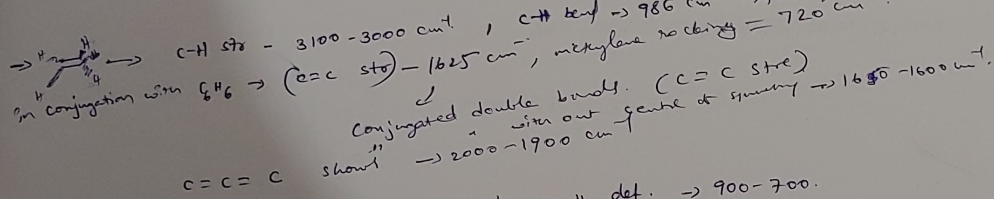 → H H H 4 → C-H str - 3100-3000 cm⁻¹, C-H bend → 986 cm
in conjugation with C6H6 → (C=C str) - 1625 cm⁻, methylene rocking = 720 cm
Conjugated double bonds. (C=C stre)
" " with out centre of symmetry → 1650-1600 cm⁻¹.
C=C=C shows → 2000-1900 cm⁻
" def. → 900-700.